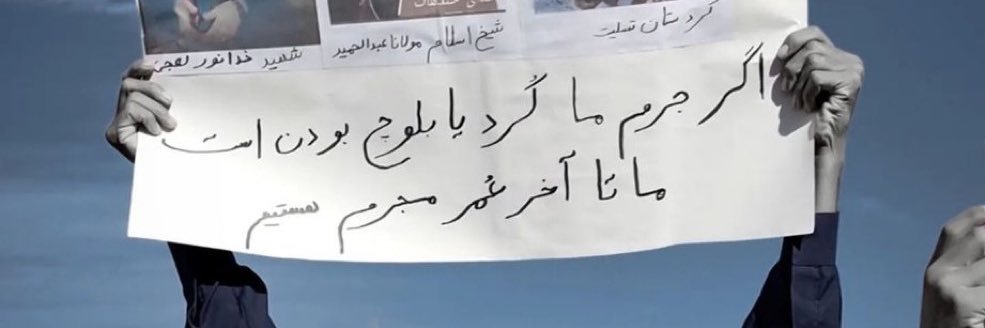 کردستان تسلیت
شیخ اسلام مولانا عبدالحمید
شهید خدانور لجعی
اگر جرم ما کُرد یا بلوچ بودن است
ما تا آخر عُمر مجرم هستیم